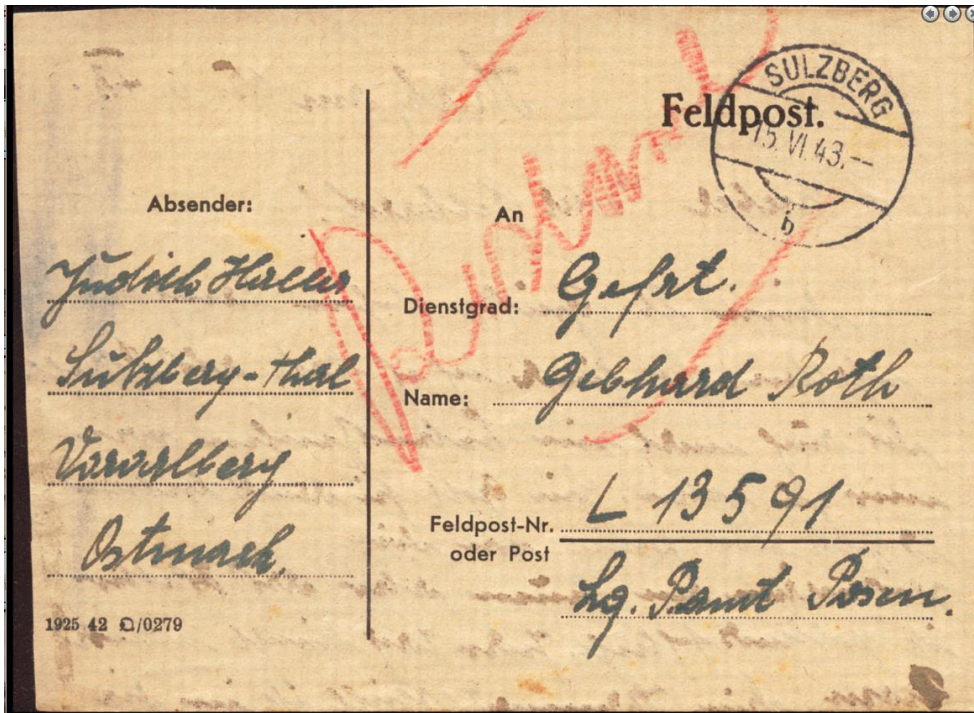 SULZBERG
15.VI.43.--
b
Feldpost.
Absender:
Judith Haller
Sulzberg-Thal
Vorarlberg
Ostmark.
1925 42 /0279
An
Dienstgrad: Gefrt.
Name: Gebhard Roth
Feldpost-Nr. L 13591
oder Post Lg. Pamt Posen.